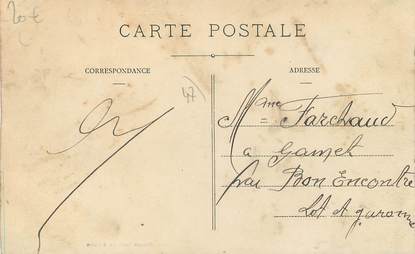 20€
CARTE POSTALE
CORRESPONDANCE
ADRESSE
47)
Mme Farchaud
a Gamet
par Bon Encontre
Lot et garonne